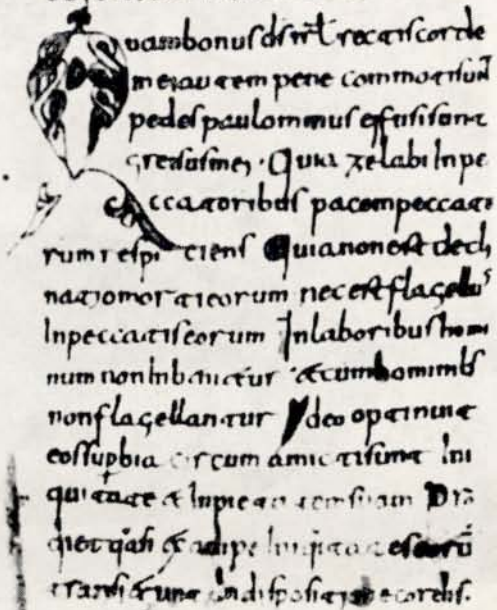 Quambonus ds isrl rectis corde
mei autem pene commoti sunt
pedes paulominus effusi sunt
gressus mei · Quia zelabi In pe
ccatoribus pacem peccato
rum respi ciens Quia non est decli
natio morti eorum nec est flagellus
In peccatis eorum In laboribus homi
num non Inbanitur et cum hominibs
non flagellantur Ideo optinuit
eos supbia circum amicti sunt Ini
quitate et Inpietatem suam
et
transierunt In dispositione cordis.